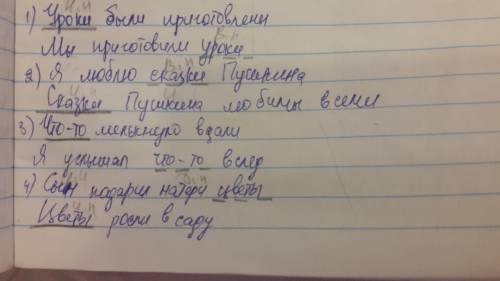 И.п
1) Уроки были приготовлены
В.п
Мы приготовили уроки
В.п
2) Я люблю сказки Пушкина
И
Сказки Пушкина любимы всеми
3) Что-то мелькнуло вдали
Я услышал что-то вслед
И.п В.п
4) Сын подарил матери цветы
И.п
Цветы росли в саду